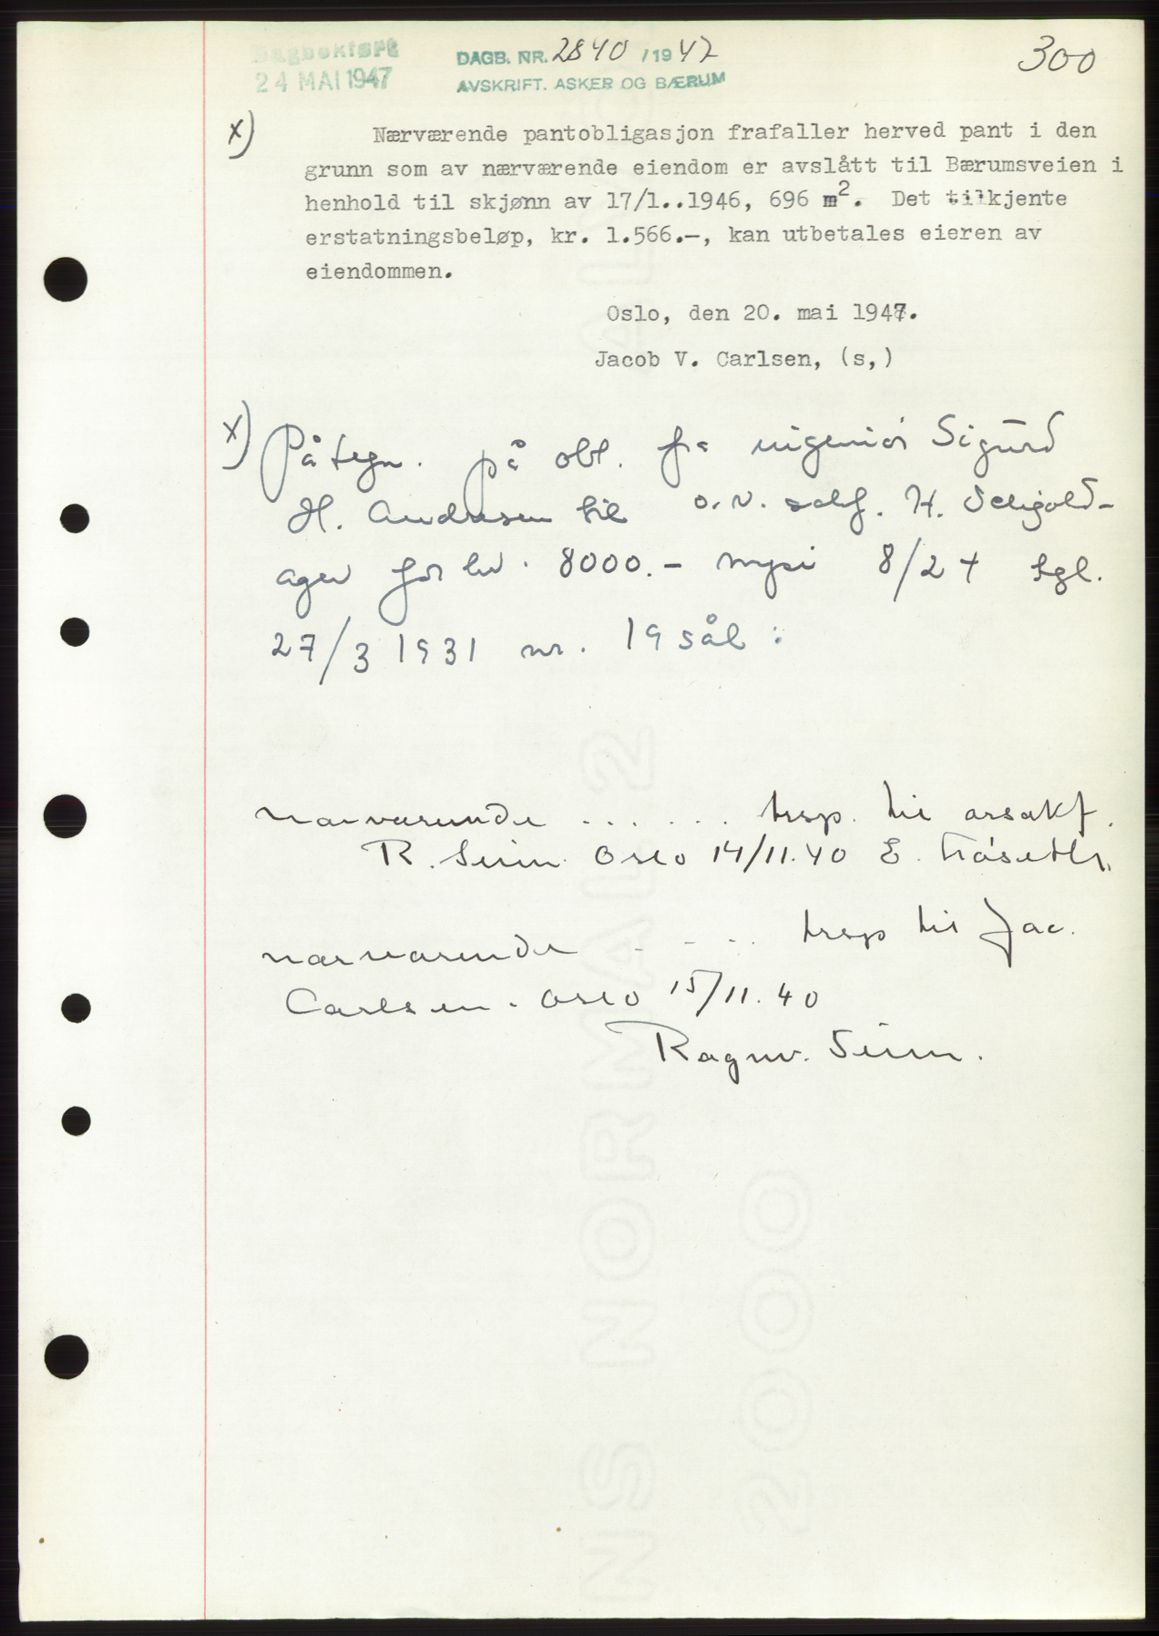 Dagbokført
24 MAI 1947
DAGB. NR. 2840 /1947
AVSKRIFT. ASKER OG BÆRUM
300
x)
Nærværende pantobligasjon frafaller herved pant i den
grunn som av nærværende eiendom er avslått til Bærumsveien i
henhold til skjønn av 17/1..1946, 696 m2. Det tilkjente
erstatningsbeløp, kr. 1.566.-, kan utbetales eieren av
eiendommen.
Oslo, den 20. mai 1947.
Jacob V. Carlsen, (s,)
x) Påtegn. på obl. fra ingeniør Sigurd
H. Andresen til o.r. sakf. H. 
ager for kr. 8000.- 8/2 tgl.
27/3 1931 nr. 19 sål:
nærværende ...... trsp. til orsakf.
R. Seim. Oslo 14/11.40 E.
nærværende .... trsp til Jac.
Carlsen. Oslo 15/11.40
Ragnv. Seim.